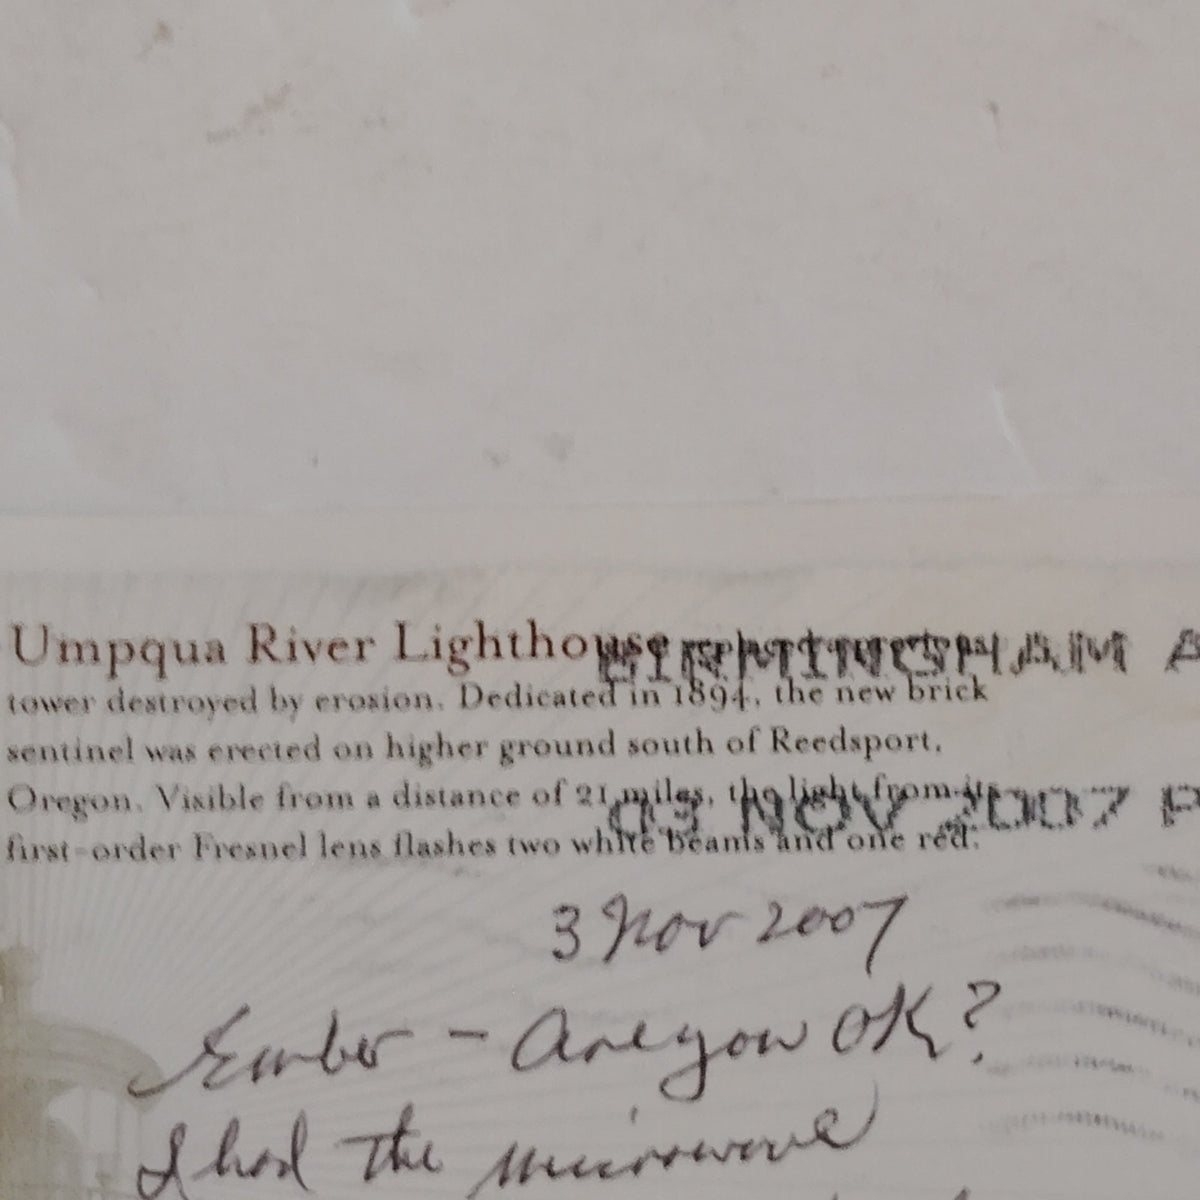 Umpqua River Lighthouse replaced the first BIRMINGHAM A
tower destroyed by erosion. Dedicated in 1894, the new brick
sentinel was erected on higher ground south of Reedsport,
Oregon. Visible from a distance of 21 miles, the light from its
NOV 2007 P
first-order Fresnel lens flashes two white beams and one red.
3 Nov 2007
Ember - Are you OK?
I had the microwave